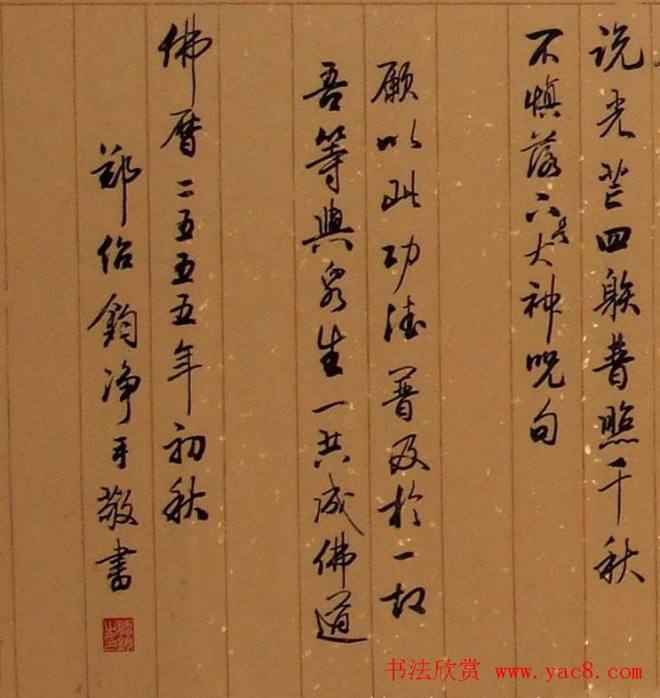 说光芒四射普照千秋
不慎落下是大神咒句
願以此功德普及於一切
吾等與眾生一共成佛道
佛曆二五五五年初秋
郑鈞净手敬書
书法欣赏 www.yac8.com